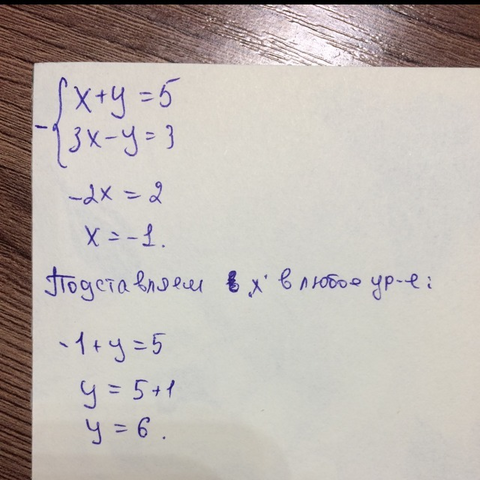 x+y=5
- 3x-y=3
-2x=2
x=-1.
Подставляем "x" в любое ур-е:
-1+y=5
y=5+1
y=6.